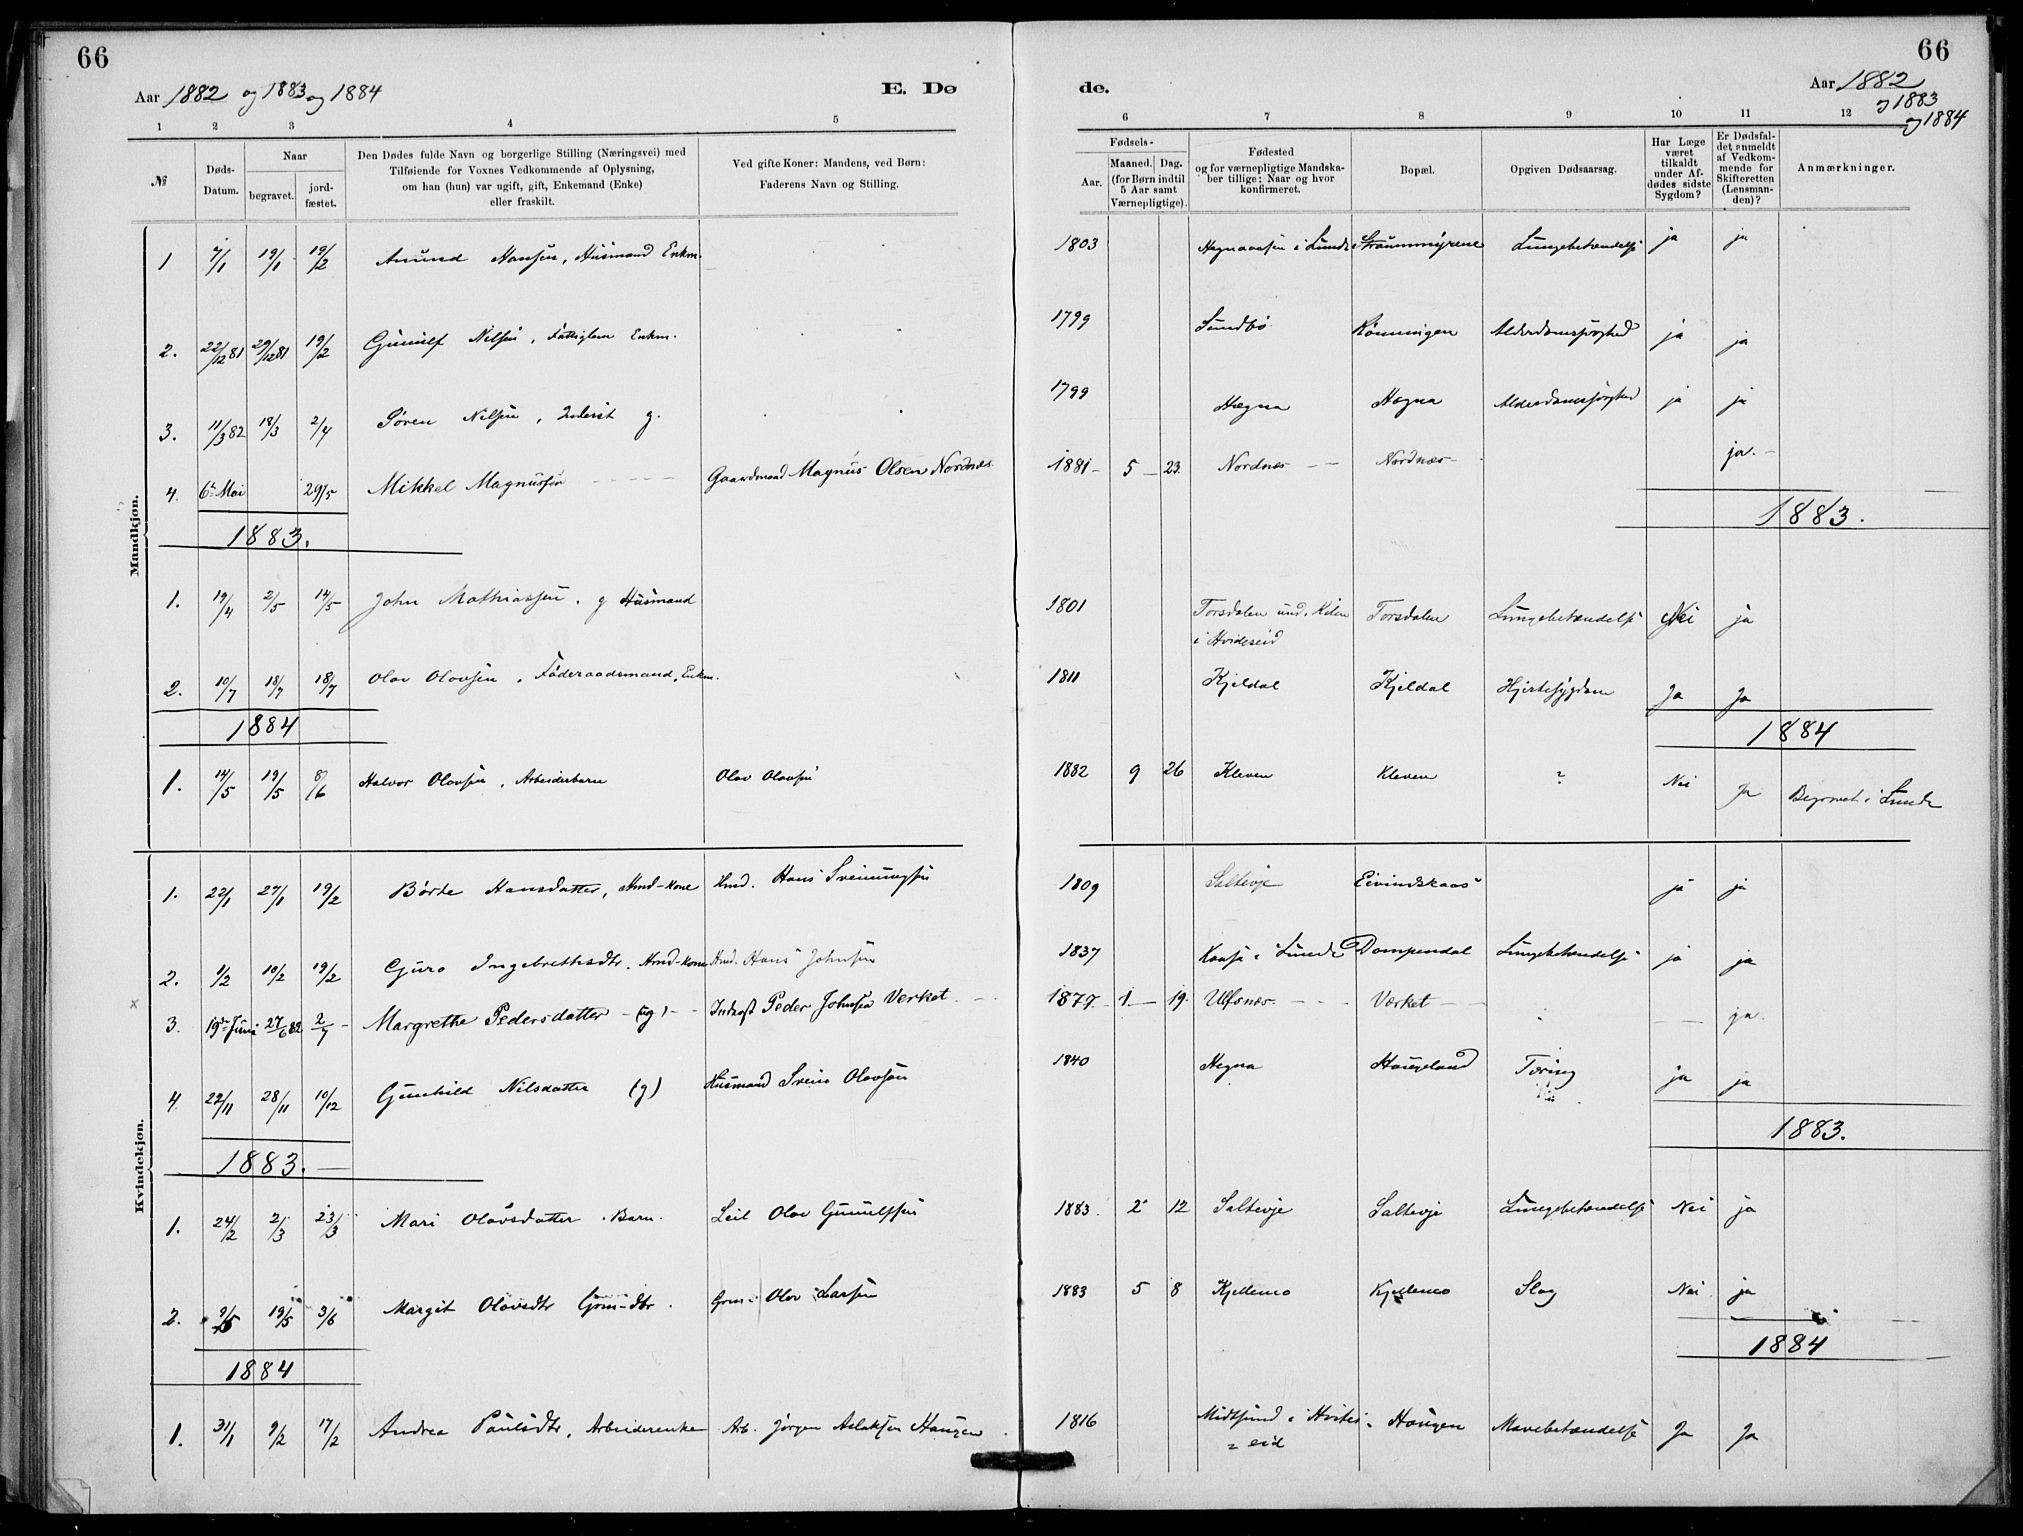 66
66
Aar 1882 og 1883 og 1884
E. Dø
de.
Aar 1882
og 1883
og 1884
1 2 3 4 5 6 7 8 9 10 11 12
№
Døds-Datum.
Naar
begravet.
jordfæstet.
Den Dødes fulde Navn og borgerlige Stilling (Næringsvei) med
Tilføiende for Voxnes Vedkommende af Oplysning,
om han (hun) var ugift, gift, Enkemand (Enke)
eller fraskilt.
Ved gifte Koner: Mandens, ved Børn:
Faderens Navn og Stilling.
Fødsels-
Aar.
Maaned. Dag.
(for Børn indtil
5 Aar samt
Værnepligtige).
Fødested
og for værnepligtige Mandska-
ber tillige: Naar og hvor
konfirmeret.
Bopæl.
Opgiven Dødsaarsag.
Har Læge
været
tilkaldt
under Af-
dødes sidste
Sygdom?
Er Dødsfal-
det anmeldt
af Vedkom-
mende for
Skifteretten
(Lensman-
den)?
Anmærkninger.
Mandkjøn.
1 7/1 19/1 19/2 Amund Hansen, Husmand Enkm. 1803 i Lunde Straummyrene Lungebetændelse ja ja
2. 22/12 81 29/12 81 19/2 Gunulf Nilsen, Fattiglem Enkm. 1799 Sundbø Rønningen Alderdomssvaghed ja ja
3. 11/3 82 18/3 2/4 Søren Nilsen, Inderst g. 1799 Hægna Hægna Alderdomssvaghed ja ja
4. 6te Mai 29/5 Mikkel Magnussen Gaardmand Magnus Olsen Nordnæs 1881 - 5 - 23. Nordnæs - - Nordnæs - ja. -
1883. 1883.
1. 19/4 2/5 14/5 John Mathiassen. g Husmand 1801 Torsdalen und. Kilen Torsdalen Lungebetændelse Nei ja
i Hvideseid
2. 10/7 18/7 18/7 Olav Olavsen, Føderaadsmand, Enkm. 1811 Kjeldal Kjeldal Hjertesygdom Ja Ja
1884 1884
1. 14/5 19/5 8/6 Halvor Olavsen, Arbeiderbarn Olav Olavsen 1882 9 26 Kleven Kleven ? Nei Ja Begravet i Lunde
Kvindekjøn.
1. 22/1 27/1 19/2 Børte Hansdatter, Hmd-kone Hmd. Hans Sveinungsen 1809 Saltevje Eivindskaas ja ja
2. 1/2 10/2 19/2 Guro Ingebrethsdtr. Hmd-kone Hmd. Hans Johnsen 1837 Kaasa i Lunde Dompendal Lungebetændelse ja ja
x 3. 19de Juni 27/6 82 2/7 - Margrethe Pedersdatter - (ug) - - Peder Johnsen Verket. - 1877. - 1 - 19. Ulfsnæs. - - - Værket - - - ja.
4 22/11 28/11 10/12 Gunhild Nilsdatter (g) Husmand Svein Olavsøn 1840 Hegna Haugeland Tæring ja ja
1883. - 1883.
1. 24/2 2/3 23/3 Mari Olavsdatter. Barn. Leil Olav Gunulfsen 1883. 2 12 Saltevje Saltevje Lungebetændelse Nei ja
2. 9/5 19/5 3/6 Margit Olavsdtr Grm-dtr. Grm. Olav Larsen 1883 5 8 Kjellemo Kjellemo Slag Nei ja
1884 1884
1. 31/1 9/2 17/2 Andrea Paulsdtr, Arbeiderenke Arb. Jørgen Aslaksen Haugen 1816 Midtsund i Hvites= Haugen Mavebetændelse Ja Ja
= eid